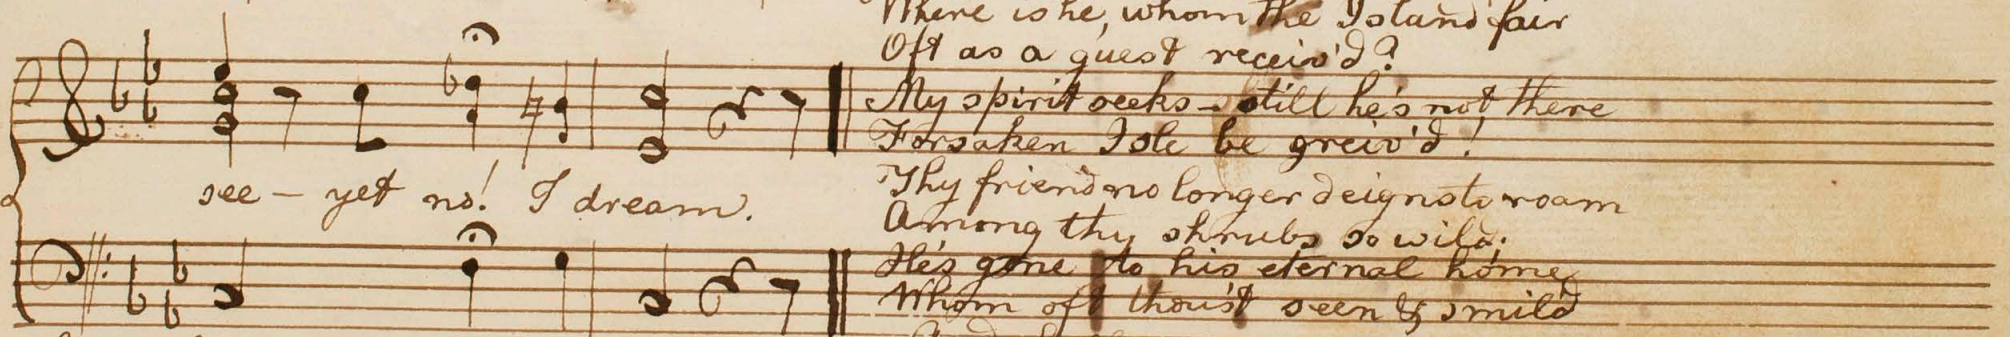 see – yet no! I dream.
Where is he, whom the Island fair
Oft as a guest receiv'd?
My spirit seeks – still he's not there
Forsaken Isle be greiv'd!
Thy friend no longer deigns to roam
Among thy shrubs so wild;
He's gone to his eternal home,
Whom oft thou'st seen & smil'd